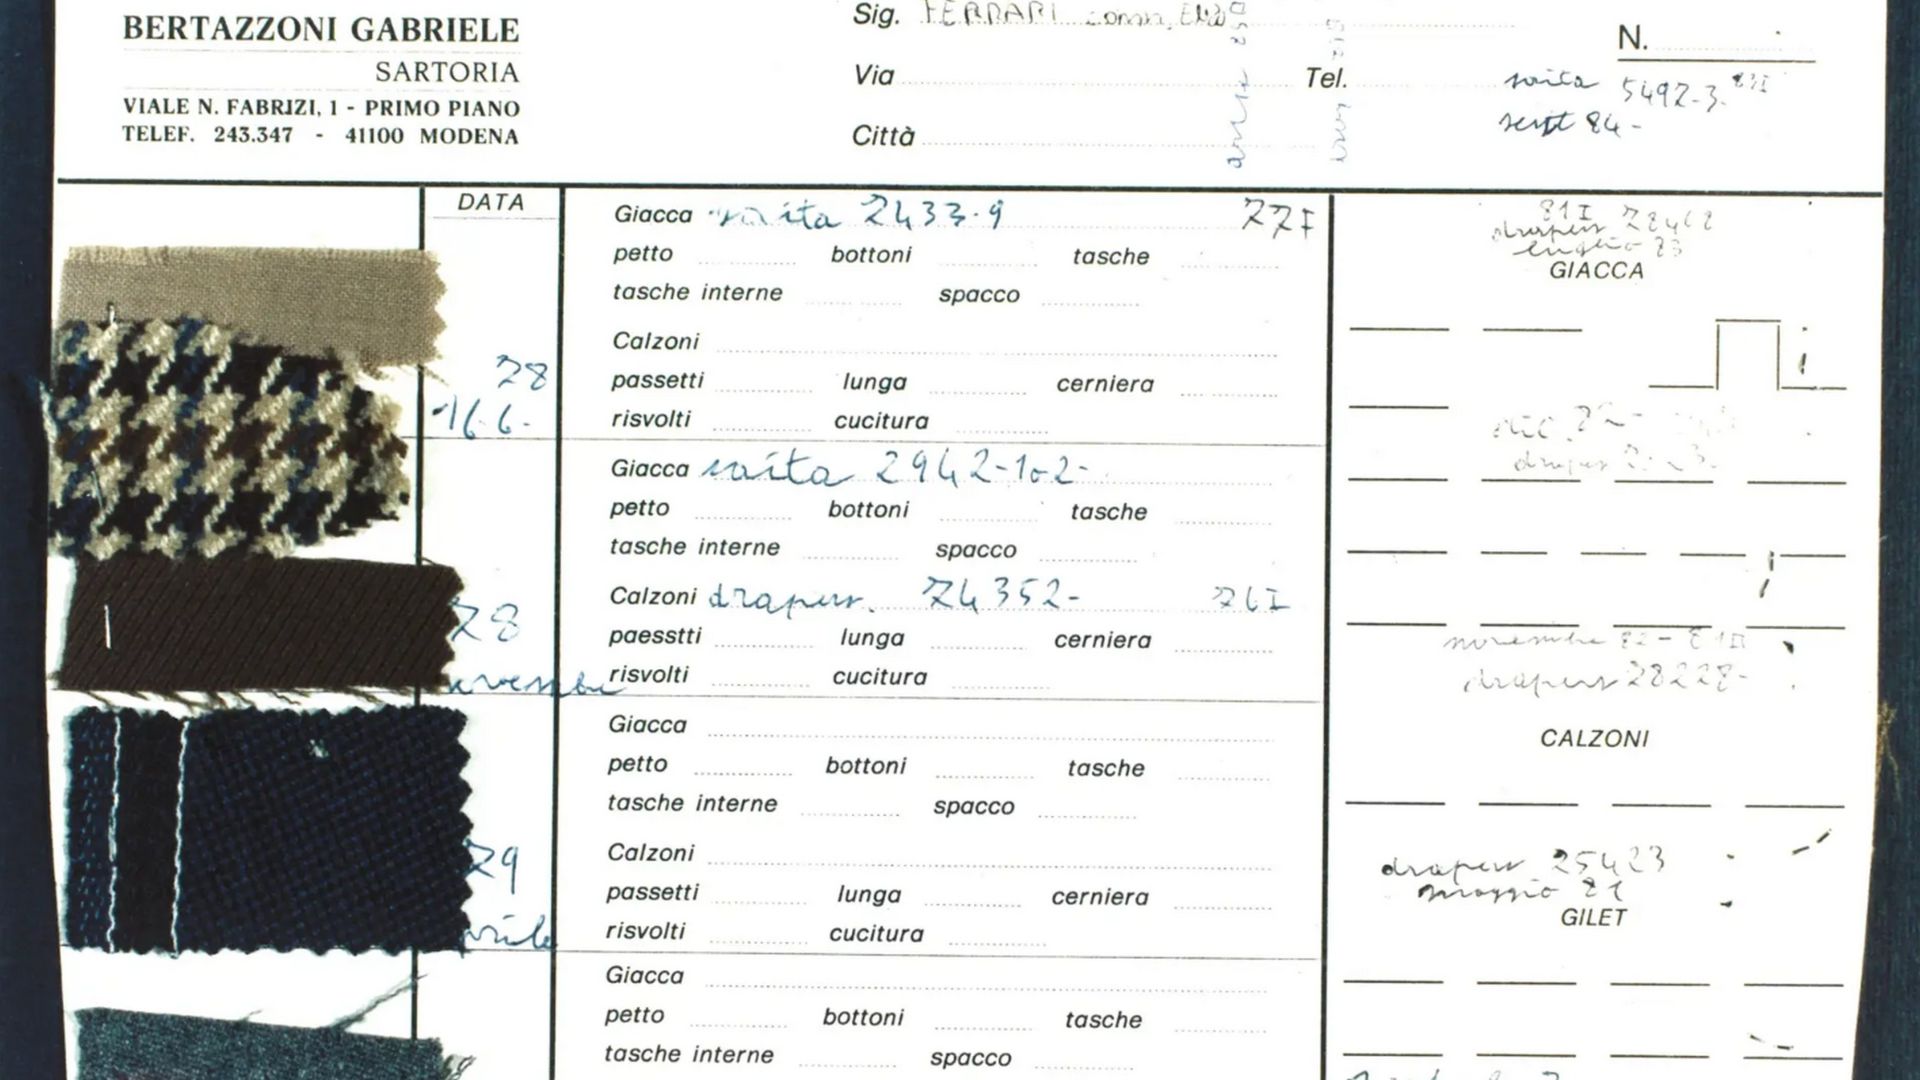 BERTAZZONI GABRIELE
SARTORIA
VIALE N. FABRIZI, 1 - PRIMO PIANO
TELEF. 243.347 - 41100 MODENA
Sig. FERRARI comm. Enzo
Via
Tel.
Città
N.
vaita 5492-3 83I
sett 84-
DATA
Giacca vaita 2433-9 77I
petto bottoni tasche
tasche interne spacco
Calzoni
passetti lunga cerniera
risvolti cucitura
78
16.6.
Giacca vaita 2942-102-
petto bottoni tasche
tasche interne spacco
Calzoni drapers. 74352- 76I
paesstti lunga cerniera
risvolti cucitura
78
novembre
Giacca
petto bottoni tasche
tasche interne spacco
Calzoni
passetti lunga cerniera
risvolti cucitura
79
aprile
Giacca
petto bottoni tasche
tasche interne spacco
81I
drapers 78468
luglio 83
GIACCA
novembre 82 - 81I
drapers 28228-
CALZONI
drapers 25423
maggio 81
GILET